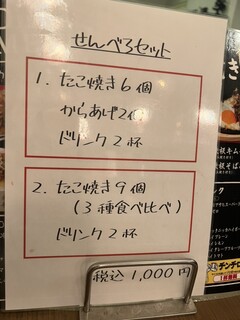 せんべろセット
1. たこ焼き6個
からあげ2個
ドリンク2杯
2. たこ焼き9個
(3種食べ比べ)
ドリンク2杯
税込 1,000円